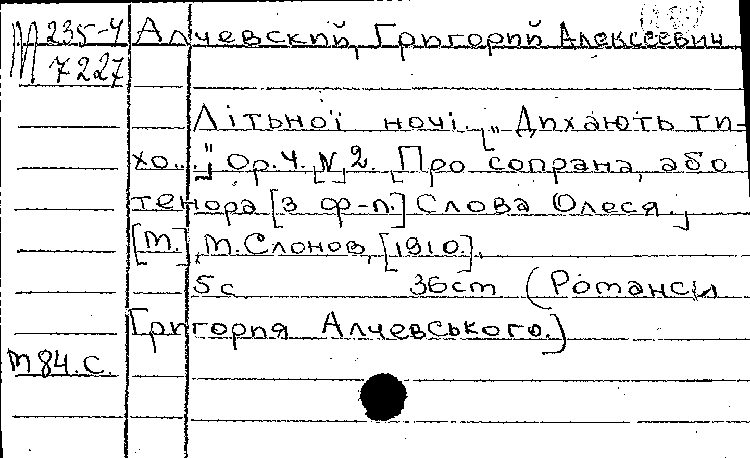 М 235-4
7227
Алчевский, Григорий Алексеевич
Літьної ночі. ["Дихають ти-
хо..."] Ор.4. [N] 2. [Про сопрана, або
тенора [з ф-п.] Слова Олеся.]
[М.], М. Слонов, [1910].
5 с. 36 cm (Романси
Григория Алчевського.)
М 84. С.